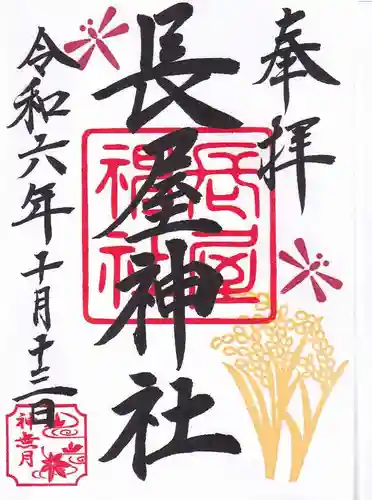 奉拝
長屋神社
令和六年十月十三日
神無月